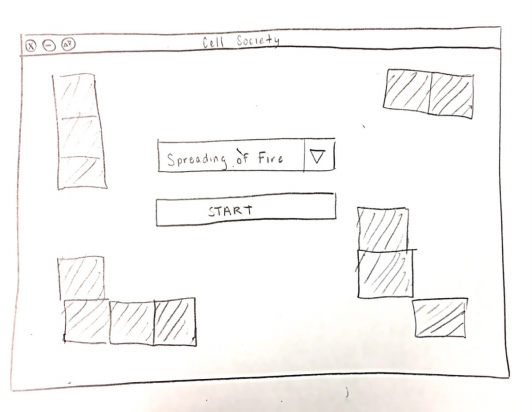 Cell Society
Spreading of Fire
START